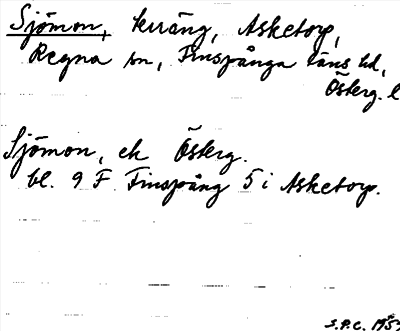 Sjömon, kärräng, Asketorp,
Regna sn, Finspånga läns hd,
Österg. l
Sjömon, ek Österg.
bl. 9 F Finspång 5 i Asketorp.
S.P.C. 195